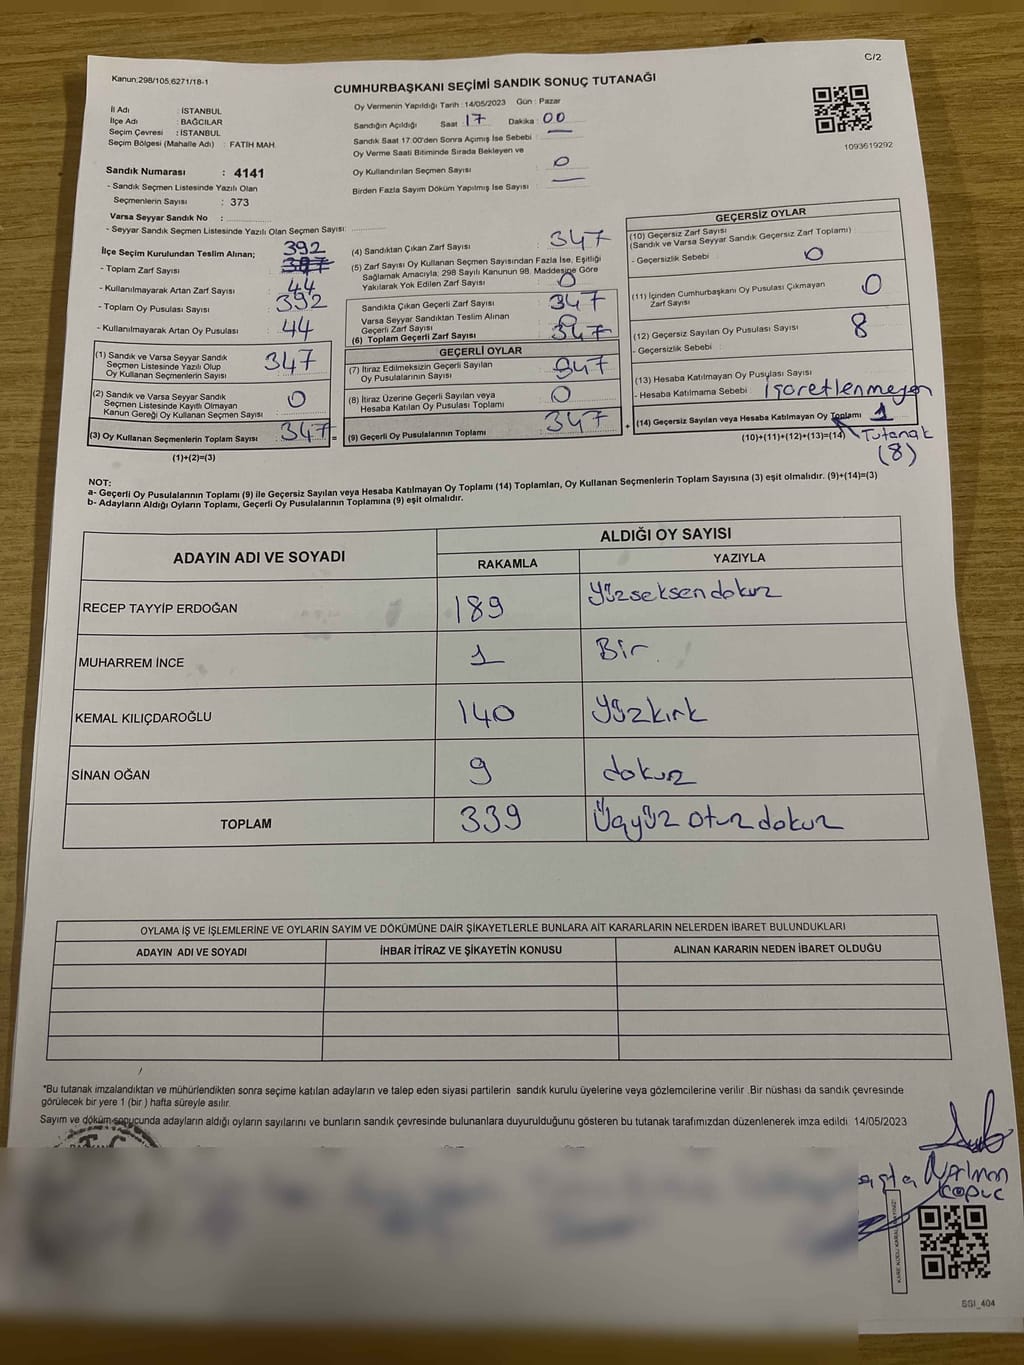 C/2
Kanun:298/105,6271/18-1
CUMHURBAŞKANI SEÇİMİ SANDIK SONUÇ TUTANAĞI
İl Adı : İSTANBUL
İlçe Adı : BAĞCILAR
Seçim Çevresi : İSTANBUL
Seçim Bölgesi (Mahalle Adı) : FATİH MAH.
Oy Vermenin Yapıldığı Tarih : 14/05/2023 Gün : Pazar
Sandığın Açıldığı Saat 17 Dakika : 00
Sandık Saat 17:00'den Sonra Açımış İse Sebebi : —
Oy Verme Saati Bitiminde Sırada Bekleyen ve
Oy Kullandırılan Seçmen Sayısı : 0
Birden Fazla Sayım Döküm Yapılmış İse Sayısı : —
1093619292
Sandık Numarası : 4141
- Sandık Seçmen Listesinde Yazılı Olan
Seçmenlerin Sayısı : 373
Varsa Seyyar Sandık No :
- Seyyar Sandık Seçmen Listesinde Yazılı Olan Seçmen Sayısı:
İlçe Seçim Kurulundan Teslim Alınan;
- Toplam Zarf Sayısı : 392
- Kullanılmayarak Artan Zarf Sayısı : 44
- Toplam Oy Pusulası Sayısı : 392
- Kullanılmayarak Artan Oy Pusulası : 44
(1) Sandık ve Varsa Seyyar Sandık
Seçmen Listesinde Yazılı Olup
Oy Kullanan Seçmenlerin Sayısı : 347
(2) Sandık ve Varsa Seyyar Sandık
Seçmen Listesinde Kayıtlı Olmayan
Kanun Gereği Oy Kullanan Seçmen Sayısı : 0
(3) Oy Kullanan Seçmenlerin Toplam Sayısı : 347 =
(1)+(2)=(3)
(4) Sandıktan Çıkan Zarf Sayısı : 347
(5) Zarf Sayısı Oy Kullanan Seçmen Sayısından Fazla İse, Eşitliği
Sağlamak Amacıyla; 298 Sayılı Kanunun 98. Maddesine Göre
Yakılarak Yok Edilen Zarf Sayısı : 0
Sandıkta Çıkan Geçerli Zarf Sayısı : 347
Varsa Seyyar Sandıktan Teslim Alınan
Geçerli Zarf Sayısı : 0
(6) Toplam Geçerli Zarf Sayısı : 347
GEÇERLİ OYLAR
(7) İtiraz Edilmeksizin Geçerli Sayılan
Oy Pusulalarının Sayısı : 347
(8) İtiraz Üzerine Geçerli Sayılan veya
Hesaba Katılan Oy Pusulası Toplamı : 0
(9) Geçerli Oy Pusulalarının Toplamı : 347 +
GEÇERSİZ OYLAR
(10) Geçersiz Zarf Sayısı
(Sandık ve Varsa Seyyar Sandık Geçersiz Zarf Toplamı) :
- Geçersizlik Sebebi : 0
(11) İçinden Cumhurbaşkanı Oy Pusulası Çıkmayan
Zarf Sayısı : 0
(12) Geçersiz Sayılan Oy Pusulası Sayısı : 8
- Geçersizlik Sebebi :
(13) Hesaba Katılmayan Oy Pusulası Sayısı :
- Hesaba Katılmama Sebebi : İşaretlenmeyen
(14) Geçersiz Sayılan veya Hesaba Katılmayan Oy Toplamı 1
(10)+(11)+(12)+(13)=(14) Tutanak
(8)
NOT:
a- Geçerli Oy Pusulalarının Toplamı (9) ile Geçersiz Sayılan veya Hesaba Katılmayan Oy Toplamı (14) Toplamları, Oy Kullanan Seçmenlerin Toplam Sayısına (3) eşit olmalıdır. (9)+(14)=(3)
b- Adayların Aldığı Oyların Toplamı, Geçerli Oy Pusulalarının Toplamına (9) eşit olmalıdır.
ADAYIN ADI VE SOYADI
ALDIĞI OY SAYISI
RAKAMLA YAZIYLA
RECEP TAYYİP ERDOĞAN 189 Yüzseksendokuz
MUHARREM İNCE 1 Bir
KEMAL KILIÇDAROĞLU 140 Yüzkırk
SİNAN OĞAN 9 dokuz
TOPLAM 339 Üçyüz otuz dokuz
OYLAMA İŞ VE İŞLEMLERİNE VE OYLARIN SAYIM VE DÖKÜMÜNE DAİR ŞİKAYETLERLE BUNLARA AİT KARARLARIN NELERDEN İBARET BULUNDUKLARI
ADAYIN ADI VE SOYADI İHBAR İTİRAZ VE ŞİKAYETİN KONUSU ALINAN KARARIN NEDEN İBARET OLDUĞU
*Bu tutanak imzalandıktan ve mühürlendikten sonra seçime katılan adayların ve talep eden siyasi partilerin sandık kurulu üyelerine veya gözlemcilerine verilir .Bir nüshası da sandık çevresinde
görülecek bir yere 1 (bir ) hafta süreyle asılır.
Sayım ve döküm sonucunda adayların aldığı oyların sayılarını ve bunların sandık çevresinde bulunanlara duyurulduğunu gösteren bu tutanak tarafımızdan düzenlenerek imza edildi. 14/05/2023
SSI_404